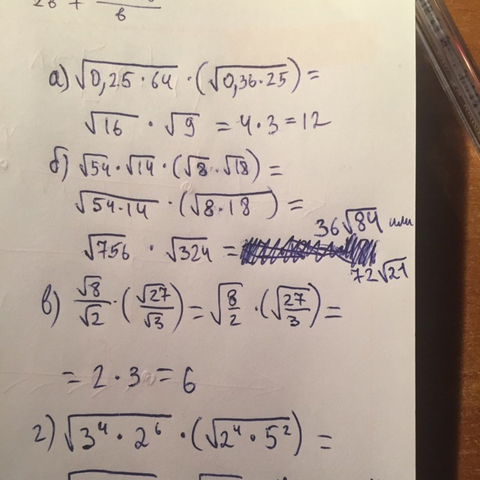 а) √(0,25 · 64) · (√(0,36 · 25)) =
√16 · √9 = 4 · 3 = 12
б) √54 · √14 · (√8 · √18) =
√(54 · 14) · (√(8 · 18)) =
√756 · √324 = 36√84 или
72√21
в) √8/√2 · (√27/√3) = √(8/2) · (√(27/3)) =
= 2 · 3 = 6
г) √(3⁴ · 2⁶) · (√(2⁴ · 5²)) =